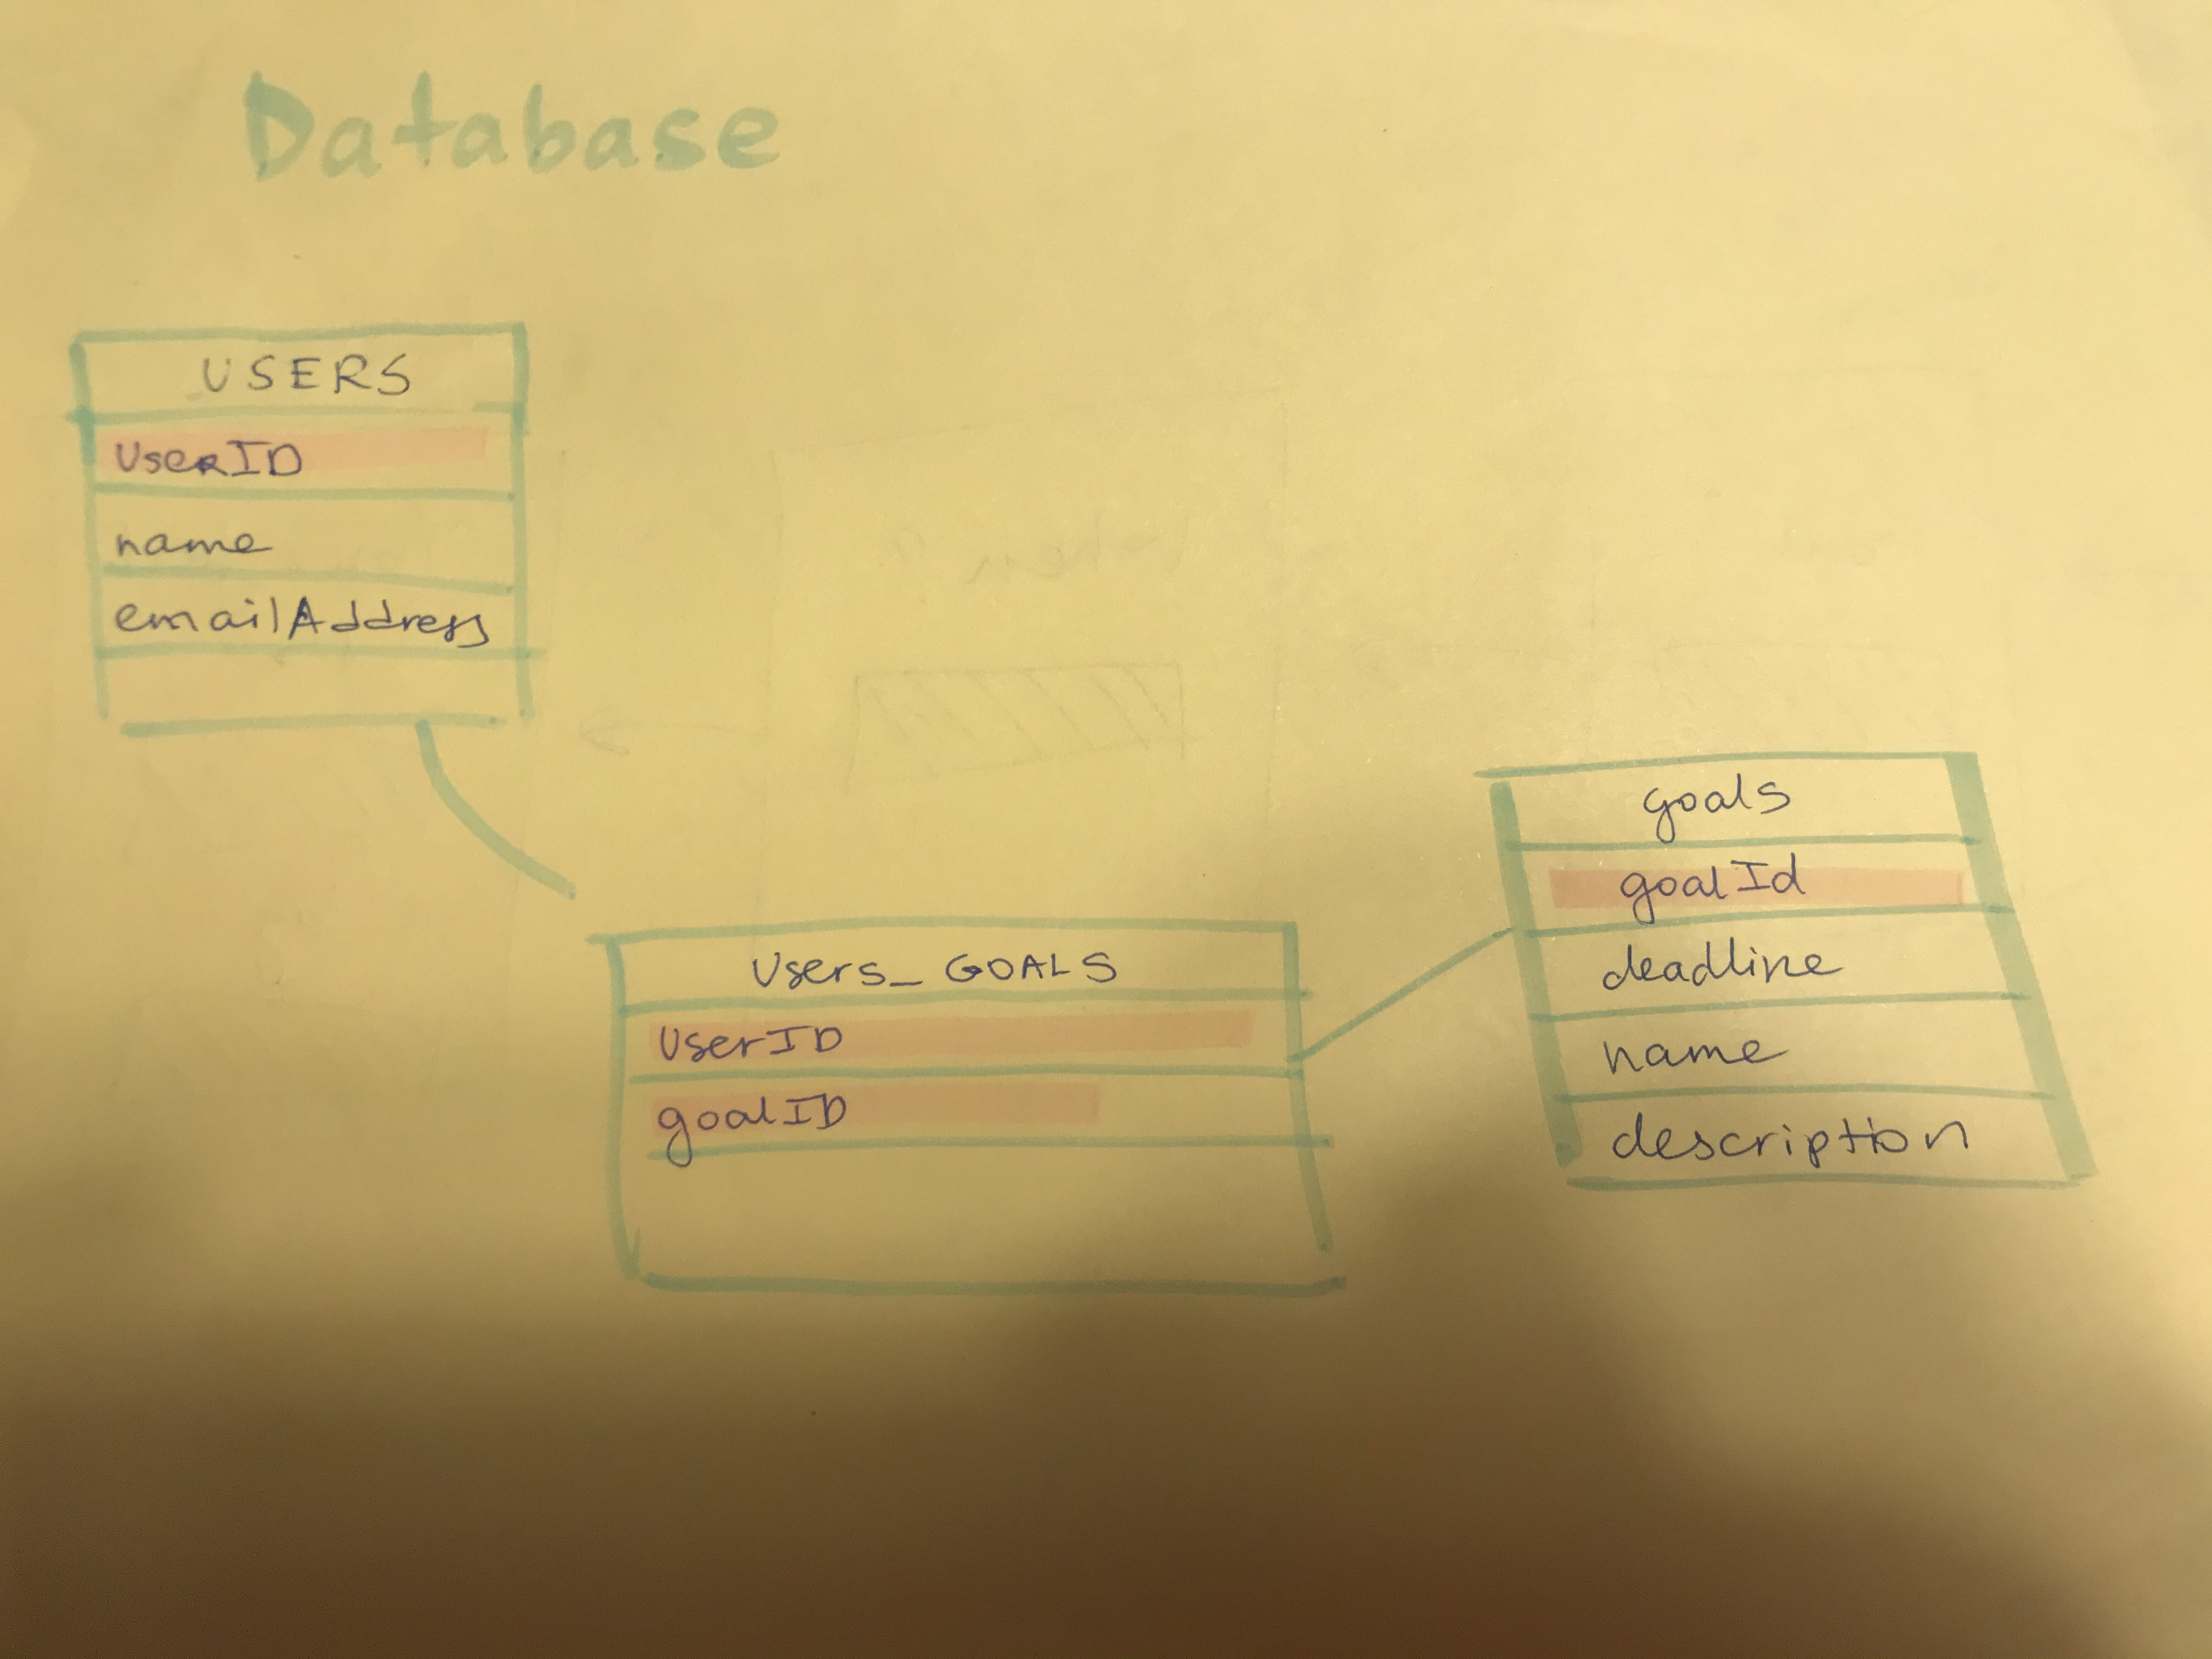 Database
USERS
UserID
name
emailAddress
Users_GOALS
UserID
goalID
goals
goalId
deadline
name
description